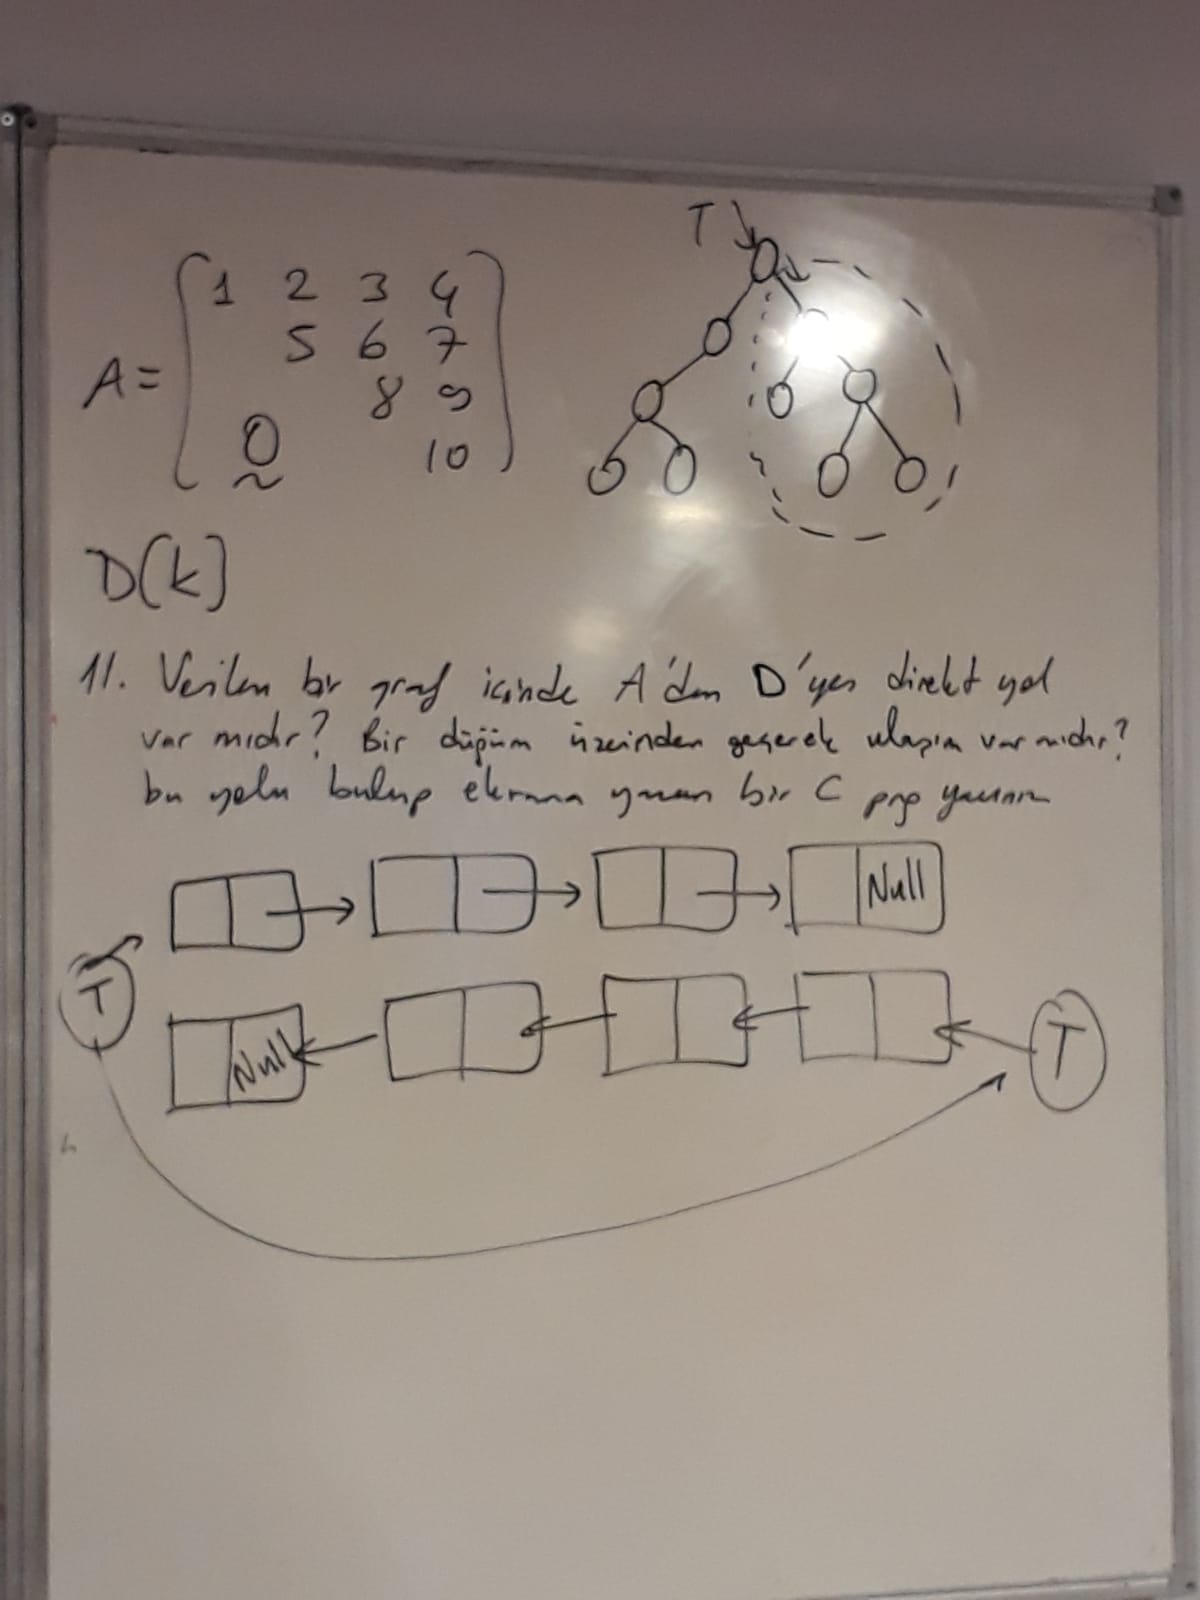 T
A =
1 2 3 4
5 6 7
8 9
0 10
D(k)
11. Verilen bir graf içinde A'dan D'ye direkt yol
var mıdır? Bir düğüm üzerinden geçerek ulaşım var mıdır?
bu yolu bulup ekrana yazan bir C prg yazınız
Null
T
Null
T